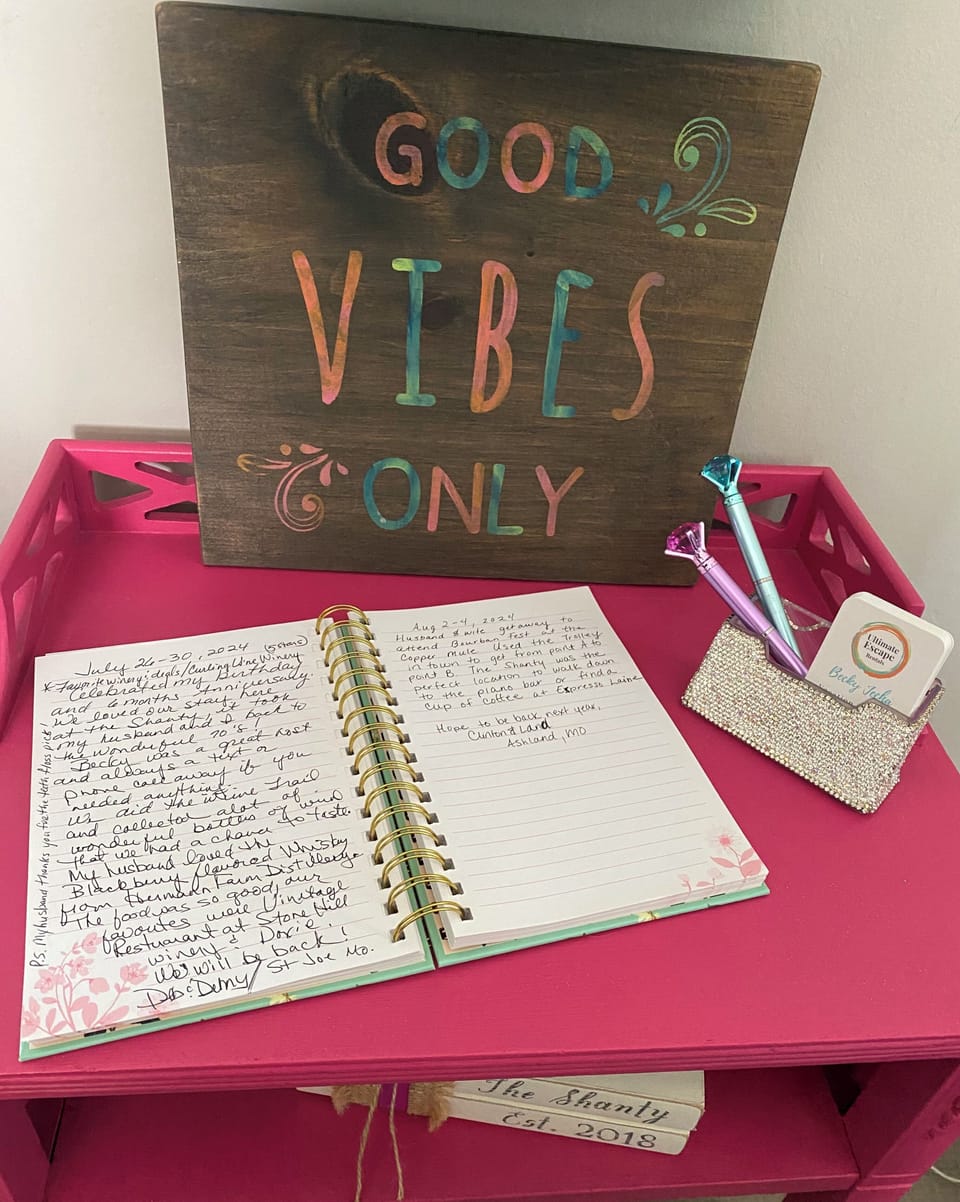 GOOD
VIBES
ONLY
July 26-30, 2024 (5 stars)
* Favorite winery: dep's/Curling Vine Winery
Celebrated my Birthday
and 6 months Anniversary.
We loved our stay here
at the Shanty, it took
my husband and I back to
the wonderful 70's!
Becky was a great host
and always a text or
phone call away if you
needed anything.
We did the Wine Trail
and collected alot of
wonderful bottles of wine
that we had a chance to taste.
My husband loved the
Blackberry flavored Whisky
from Hermann Farm Distillery.
The food was so good, our
favorites were Vintage
Restuarant at Stone Hill
Winery & Doxie
We will be back!
St Joe Mo.
P.S. My husband thanks you for the teeth floss pick
Aug 2-4, 2024
Husband & wife getaway to
attend Bourbon Fest at the
Copper Mule. Used the Trolley
in town to get from point A to
point B. The Shanty was the
perfect location to walk down
to the piano bar or find a
cup of coffee at Express Laine
Hope to be back next year,
Clinton &
Ashland, MO
Ultimate
Escape
Rentals
Becky
The Shanty
Est. 2018